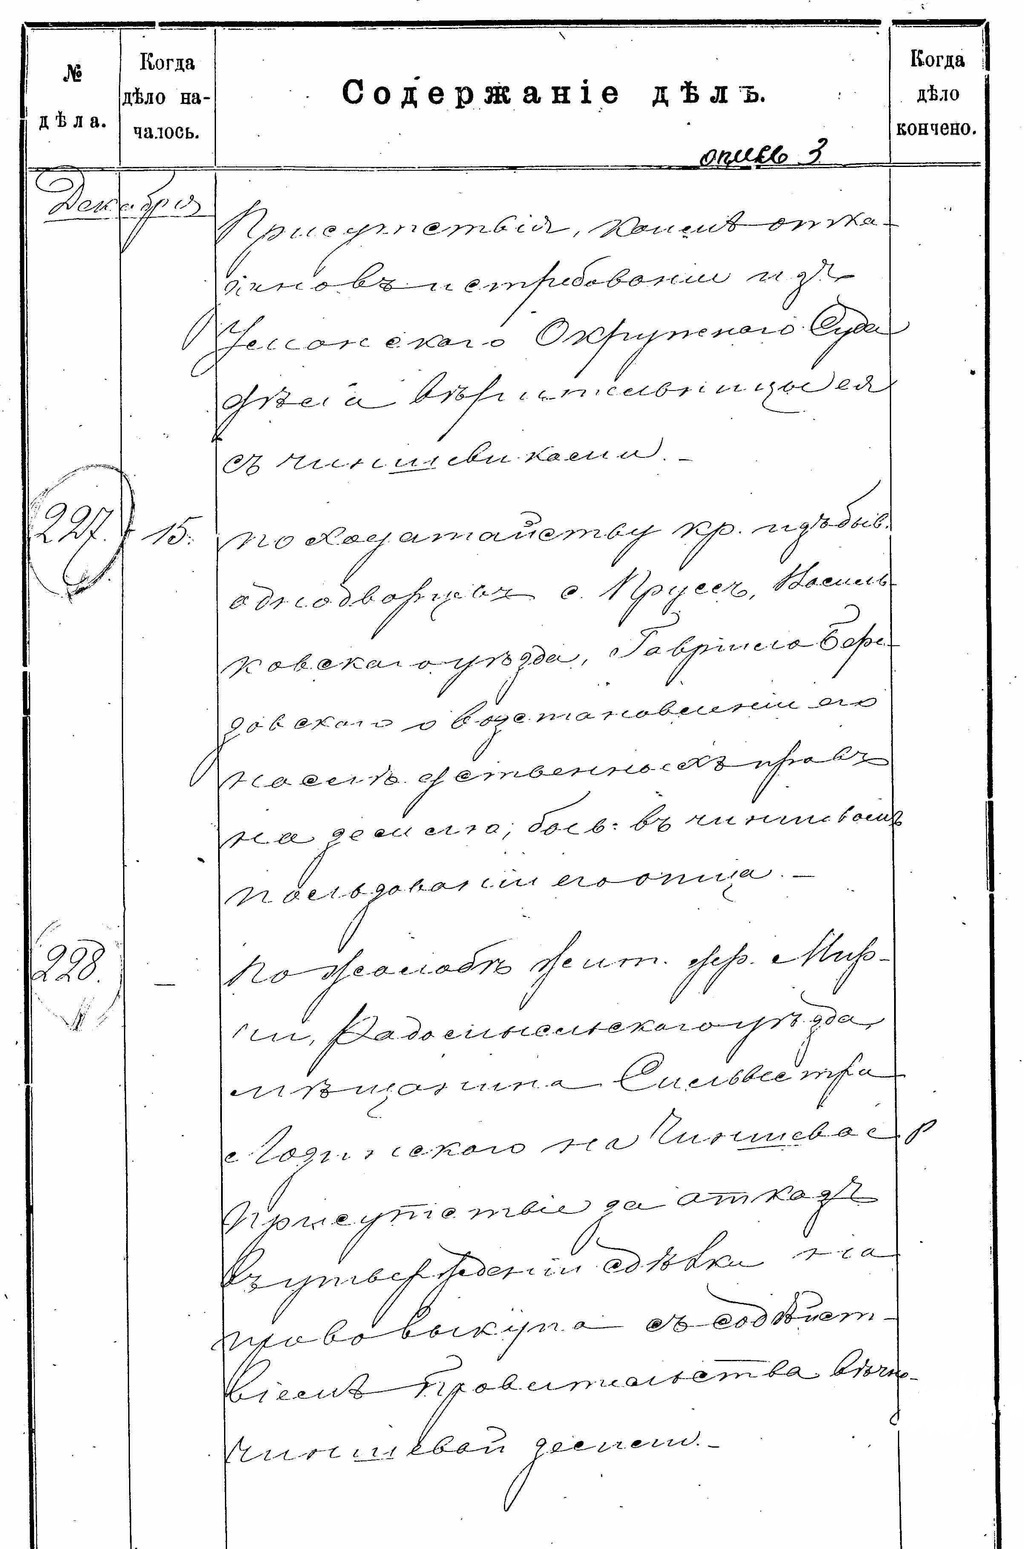 № дѣла.
Когда дѣло на-чалось.
Содержаніе дѣлъ.
Когда дѣло кончено.
опись 3
Декабря
Присутствія, коимъ отка-
зано въ истребованіи изъ
Уманскаго Окружнаго Суда
дѣла вѣрительницы ея
съ чиншевиками. –
227. 15. по ходатайству кр. изъ быв.
однодворцевъ с. Прусъ, Василь-
ковскаго уѣзда, Гавріила
о возстановленіи его
наслѣдственныхъ правъ
на землю, быв: въ чиншевомъ
послѣдованіи его отца. –
228. – По жалобѣ жит. дер.
Радомысльскаго уѣзда,
мѣщанина Сильвестра
на Чиншевое
Присутствіе за отказъ
въ утвержденіи сдѣлки на
право выкупа съ содѣйст-
віемъ Правительства вѣчно-
чиншевой земли. –